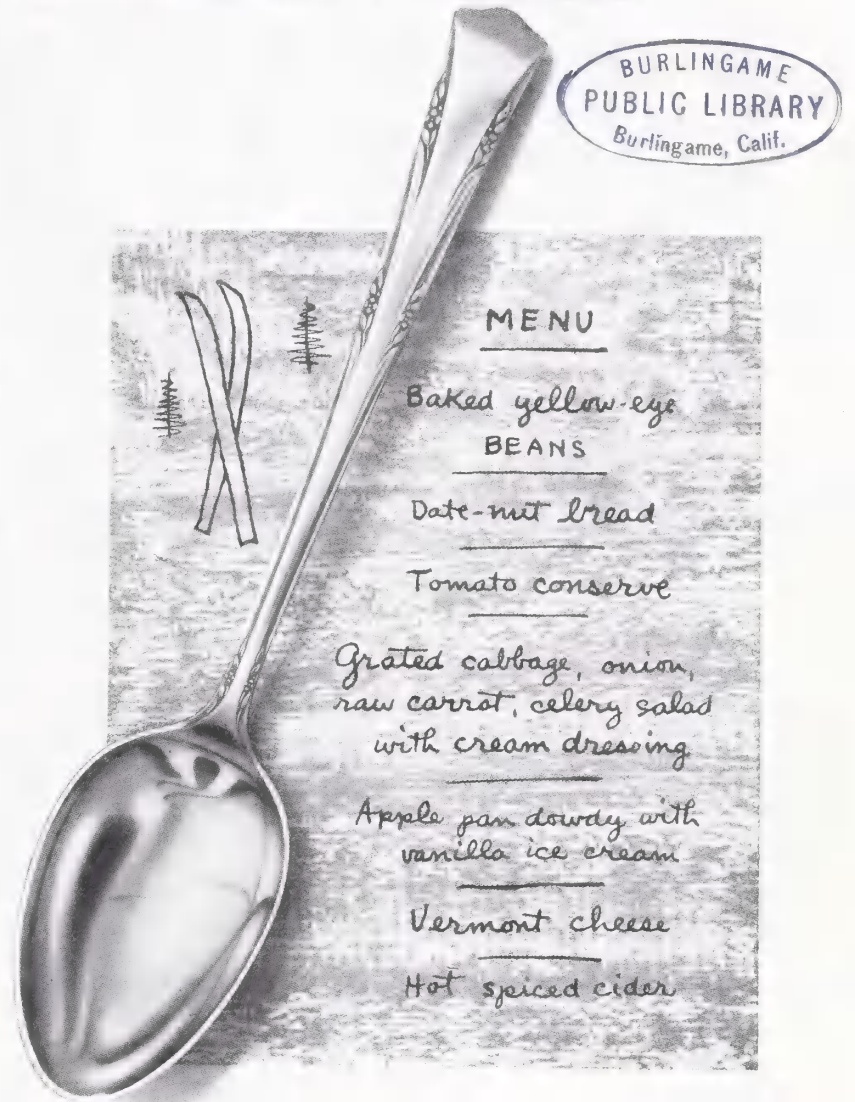 BURLINGAME
PUBLIC LIBRARY
Burlingame, Calif.
MENU
Baked yellow-eye
BEANS
Date-nut bread
Tomato conserve
Grated cabbage, onion,
raw carrot, celery salad
with cream dressing
Apple pan dowdy with
vanilla ice cream
Vermont cheese
Hot spiced cider